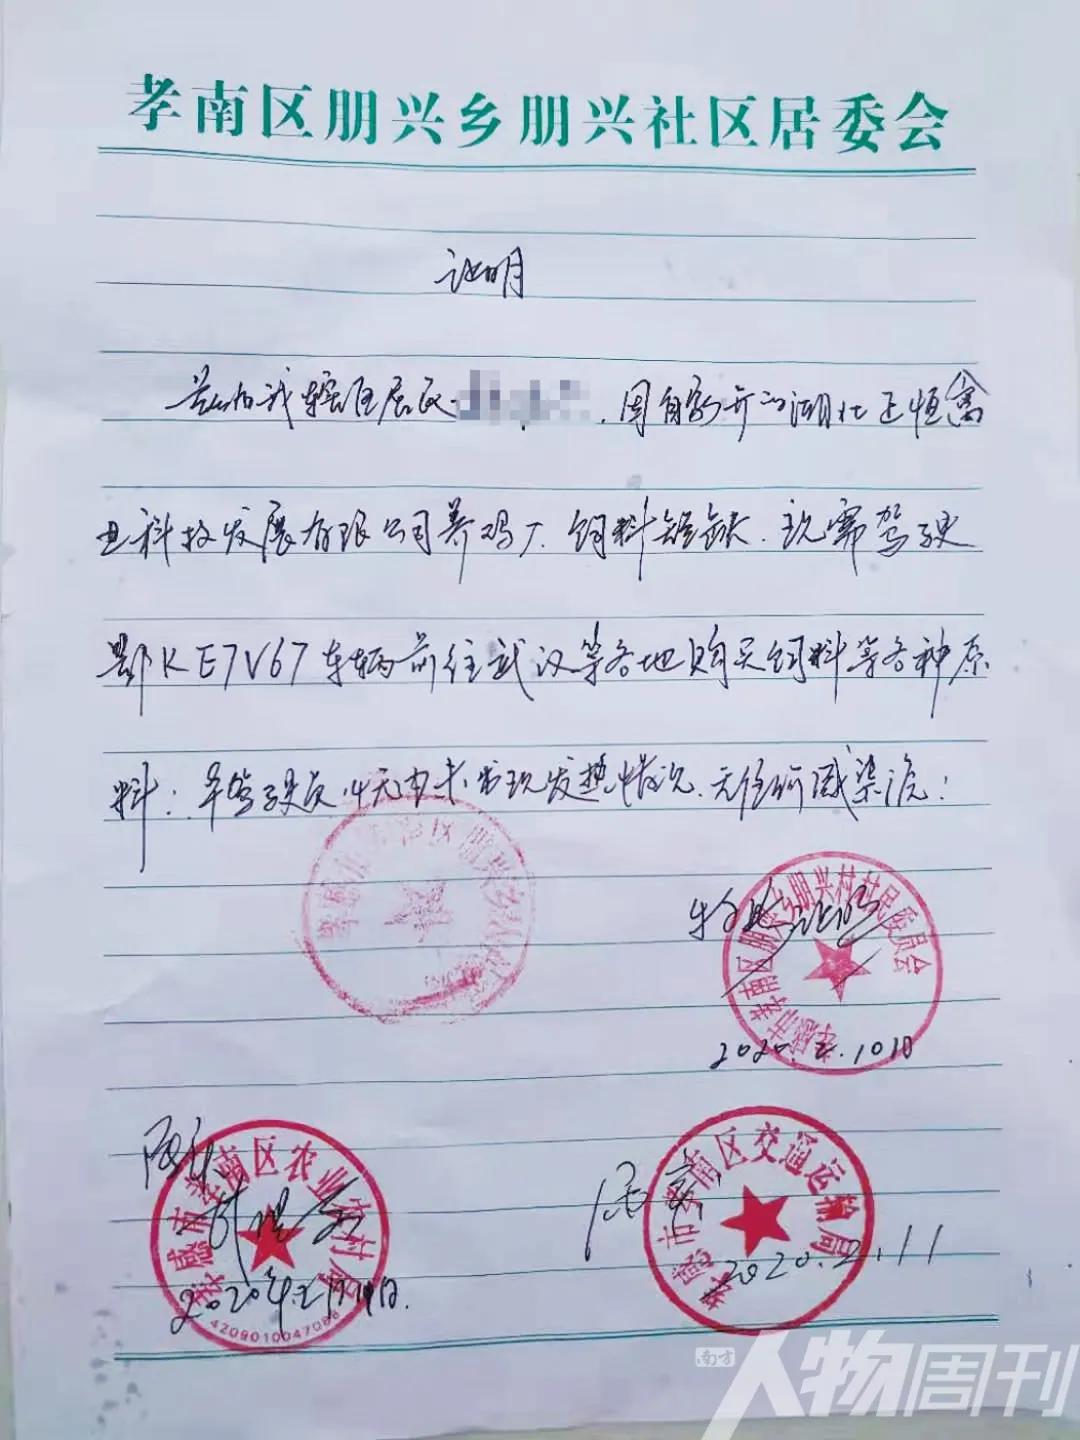 孝南区朋兴乡朋兴社区居委会
证明
兹有我辖区居民 因自家开的湖北正恒禽
业科技发展有限公司养鸡厂、饲料短缺、现需驾驶
鄂KE7V67车辆前往武汉等各地购买饲料等各种原
料；早驾驶员14天内未发现发热情况、无任何感染源：
孝感市孝南区朋兴乡
情况证明
孝感市孝南区朋兴乡朋兴村村民委员会
2020.2.10日
同意
孝感市孝南区农业农村局
2020年2月11日.
4209010047088
同意
孝感市孝南区交通运输局
2020.2.11
南方
人物周刊